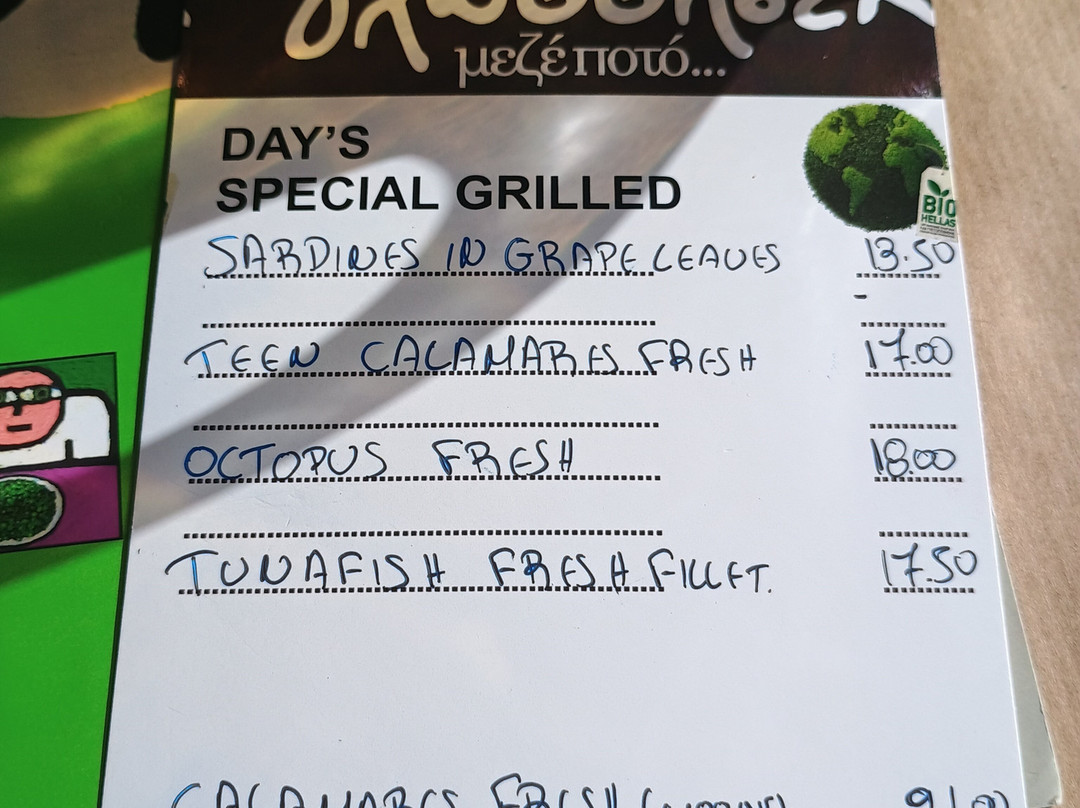 μεζέ ποτό...
DAY'S
SPECIAL GRILLED
BIO
HELLAS
SARDINES IN GRAPE LEAVES 13.50
TEEN CALAMARES FRESH 17.00
OCTOPUS FRESH 18.00
TUNAFISH FRESH FILLET. 17.50
CALAMARES FRESH